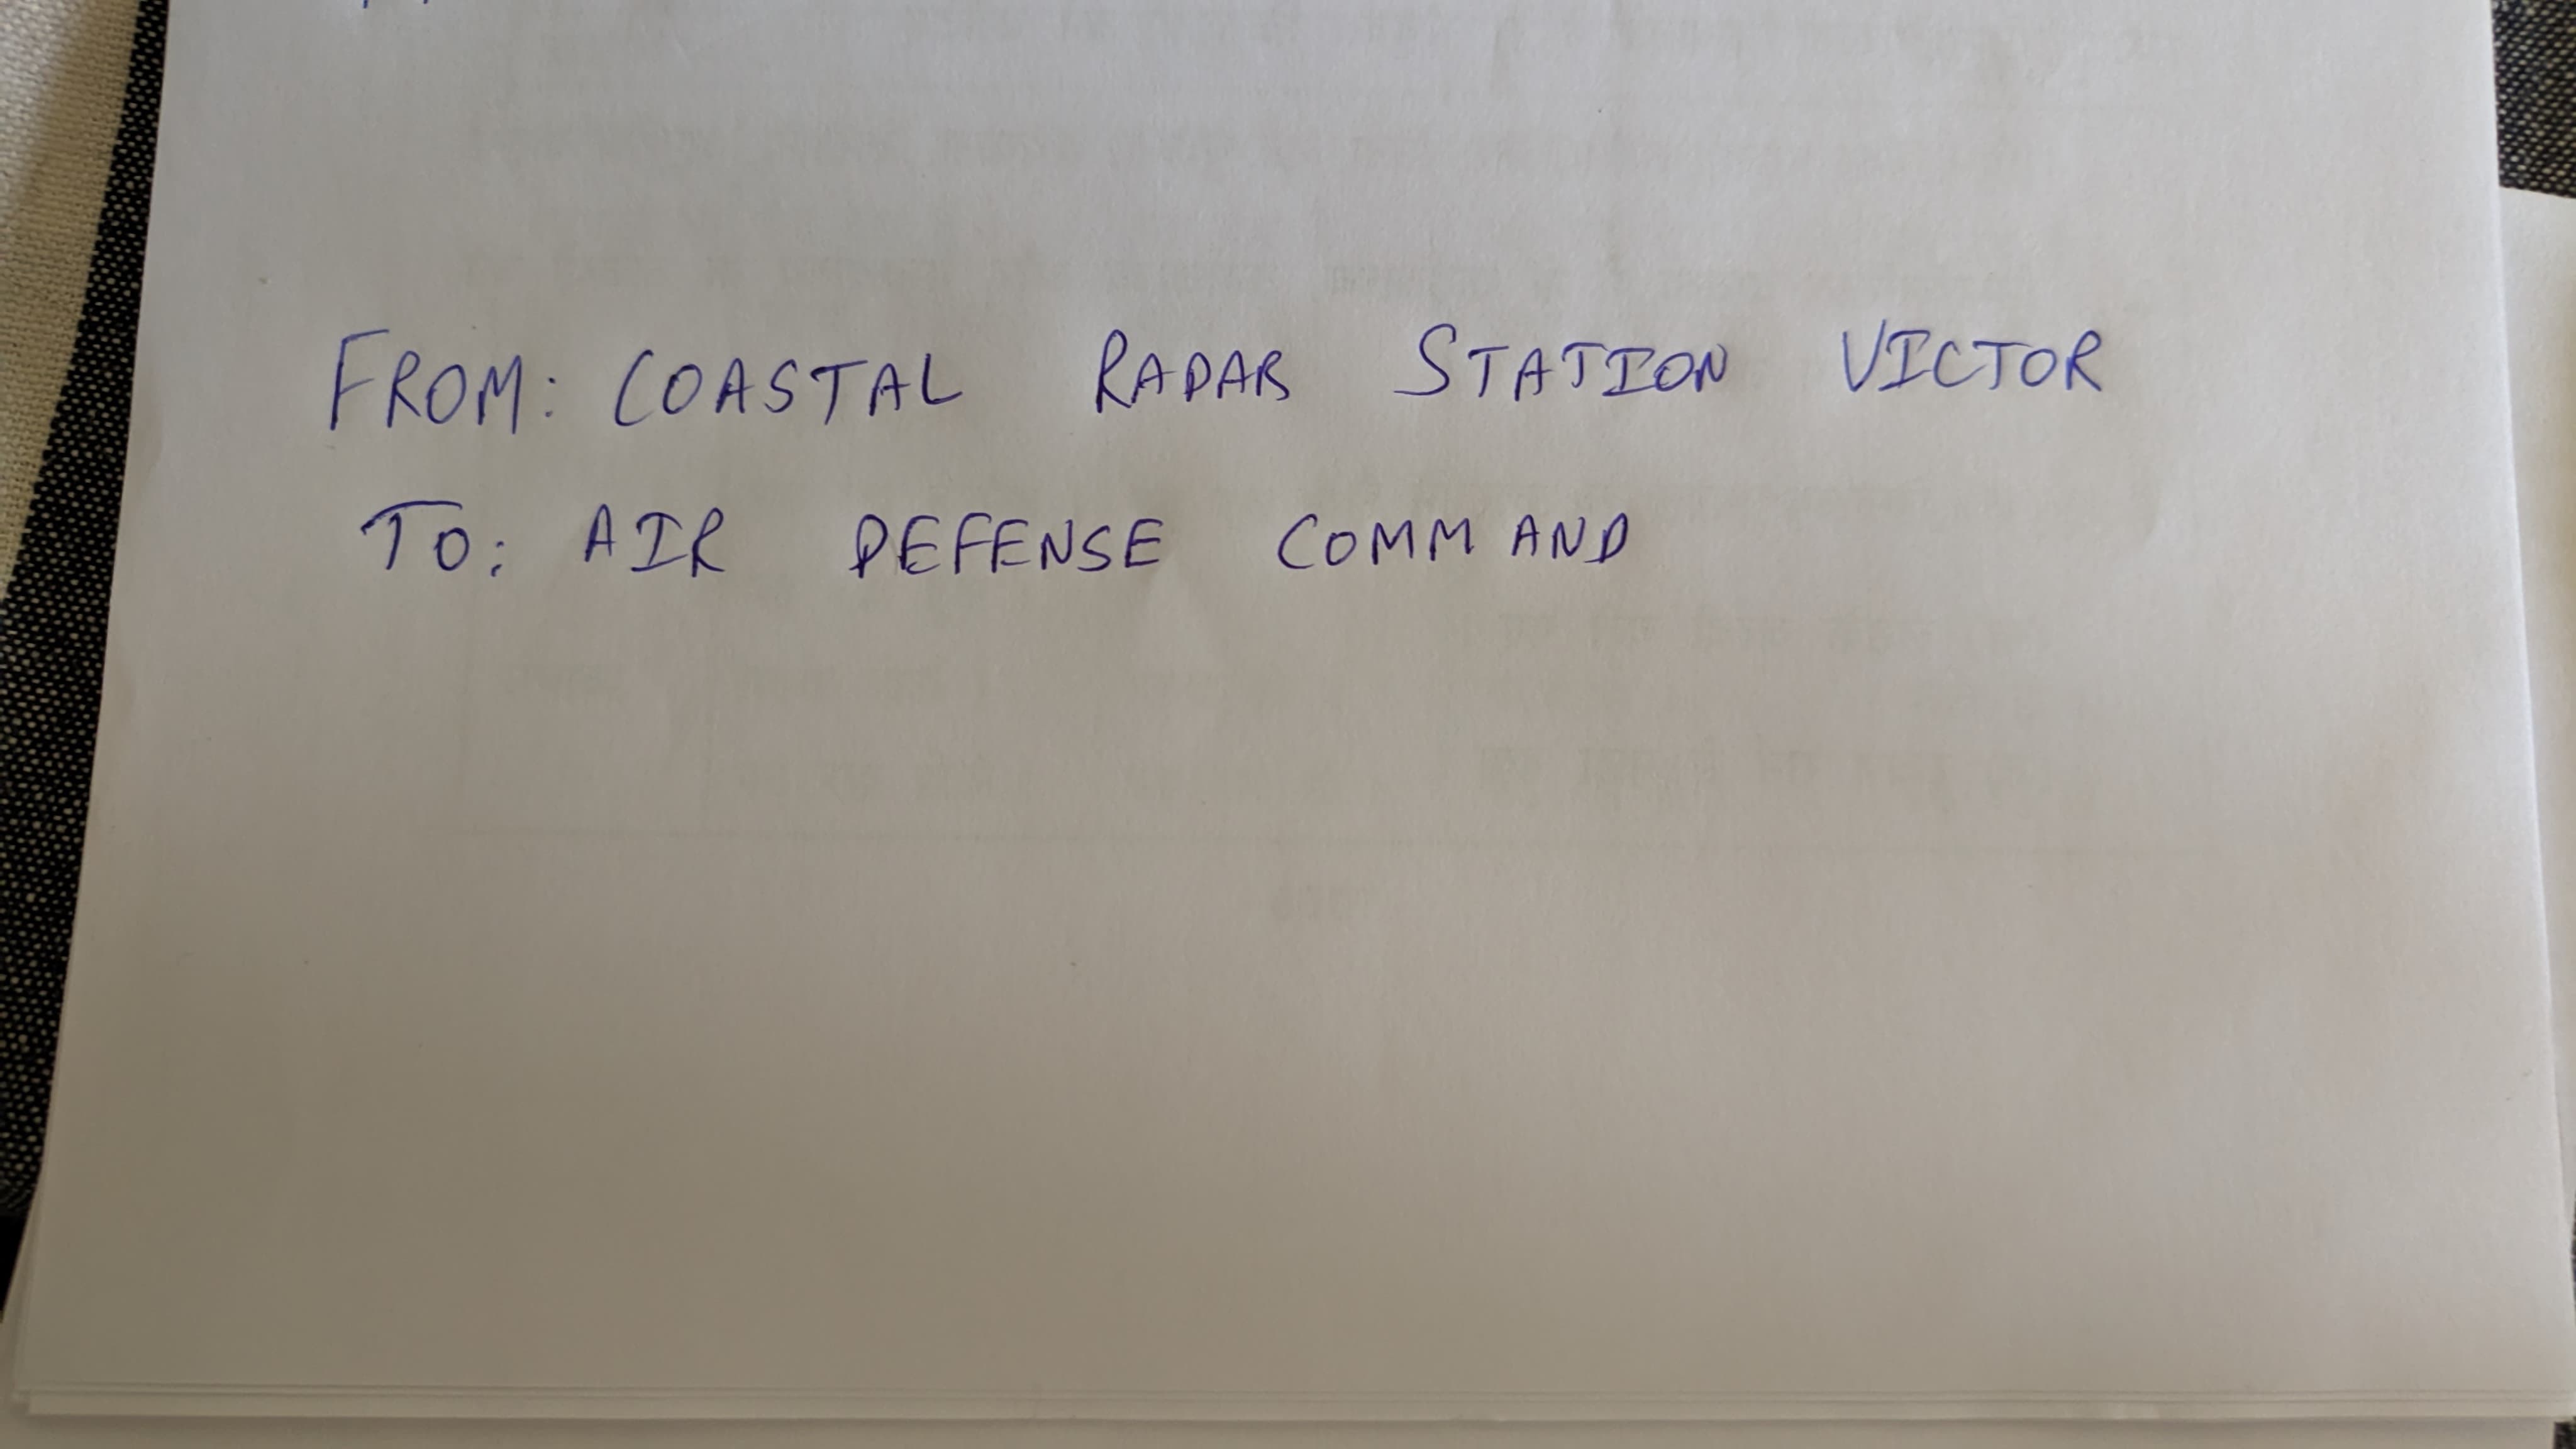 FROM: COASTAL RADAR STATION VICTOR
TO: AIR DEFENSE COMMAND